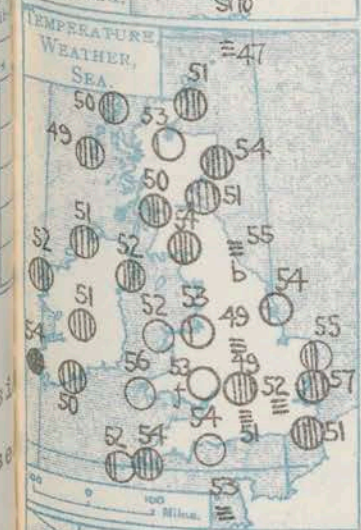 TEMPERATURE,
WEATHER,
SEA.
47
51
50
53
49
54
50
51
54
51
52
52
55
b
54
51
52
53
49
54
55
56
53
49
52
57
50
f
54
51
51
52
54
53
0
100
Miles.